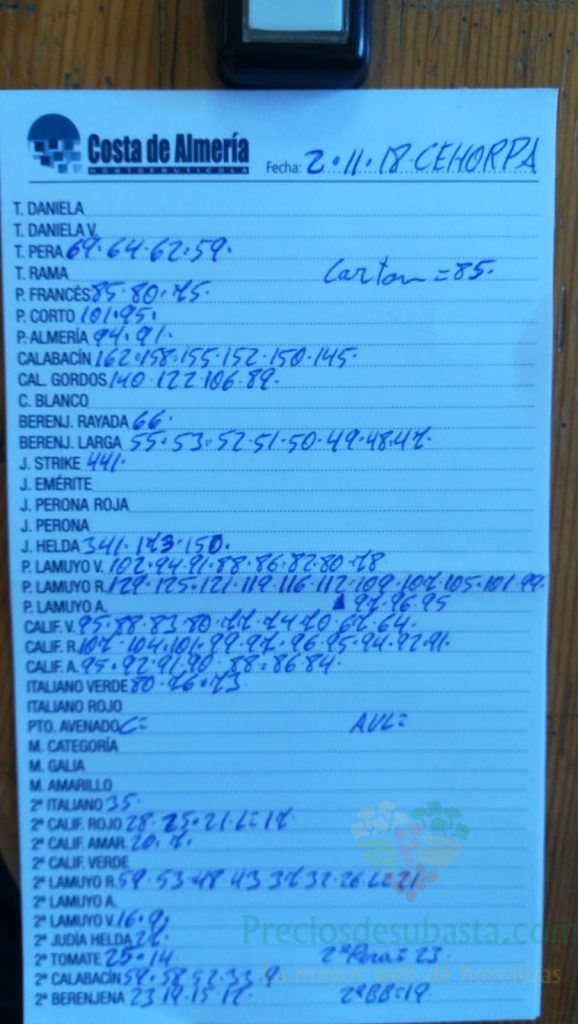 Costa de Almería
HORTOFRUTICOLA
Fecha: 2·11·18·CEHORPA
T. DANIELA
T. DANIELA V.
T. PERA 69·64·62·59·
T. RAMA Carton=85·
P. FRANCÉS 85·80·75·
P. CORTO 101·95·
P. ALMERÍA 94·91·
CALABACÍN 162·158·155·152·150·145·
CAL. GORDOS 140·122·106·89·
C. BLANCO
BERENJ. RAYADA 66·
BERENJ. LARGA 55·53·52·51·50·49·48·47·
J. STRIKE 441·
J. EMÉRITE
J. PERONA ROJA
J. PERONA
J. HELDA 341·173·150·
P. LAMUYO V. 102·94·91·88·86·82·80·78
P. LAMUYO R. 129·125·121·119·116·112·109·107·105·101·99·
P. LAMUYO A. 97·96·95
CALIF. V. 95·88·83·80·77·74·70·67·64·
CALIF. R. 107·104·101·99·97·96·95·94·92·91·
CALIF. A. 95·92·91·90·88·86·84·
ITALIANO VERDE 80·76·73
ITALIANO ROJO
PTO. AVENADO C= AVL=
M. CATEGORÍA
M. GALIA
M. AMARILLO
2ª ITALIANO 35·
2ª CALIF. ROJO 28·25·21·L=17
2ª CALIF. AMAR. 20·7·
2ª CALIF. VERDE
2ª LAMUYO R. 59·53·48·43·37·32·26·L=21·
2ª LAMUYO A.
2ª LAMUYO V. 16·9·
2ª JUDÍA HELDA
2ª TOMATE 25·14· 2ªPera=23
2ª CALABACÍN 59·58·52·33·9
2ª BERENJENA 23·19·15·12· 2ªBB=19
Preciosdesubasta.com
La mayor web de hortalizas